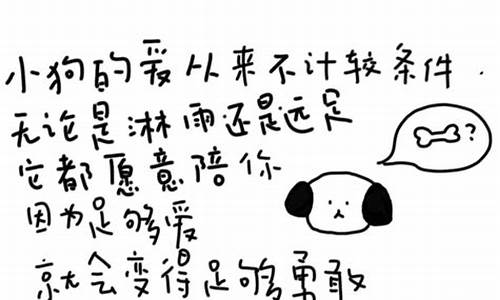 小狗的爱从来不计较条件.
无论是淋雨还是远足
它都愿意陪你
因为足够爱
就会变得足够勇敢
?